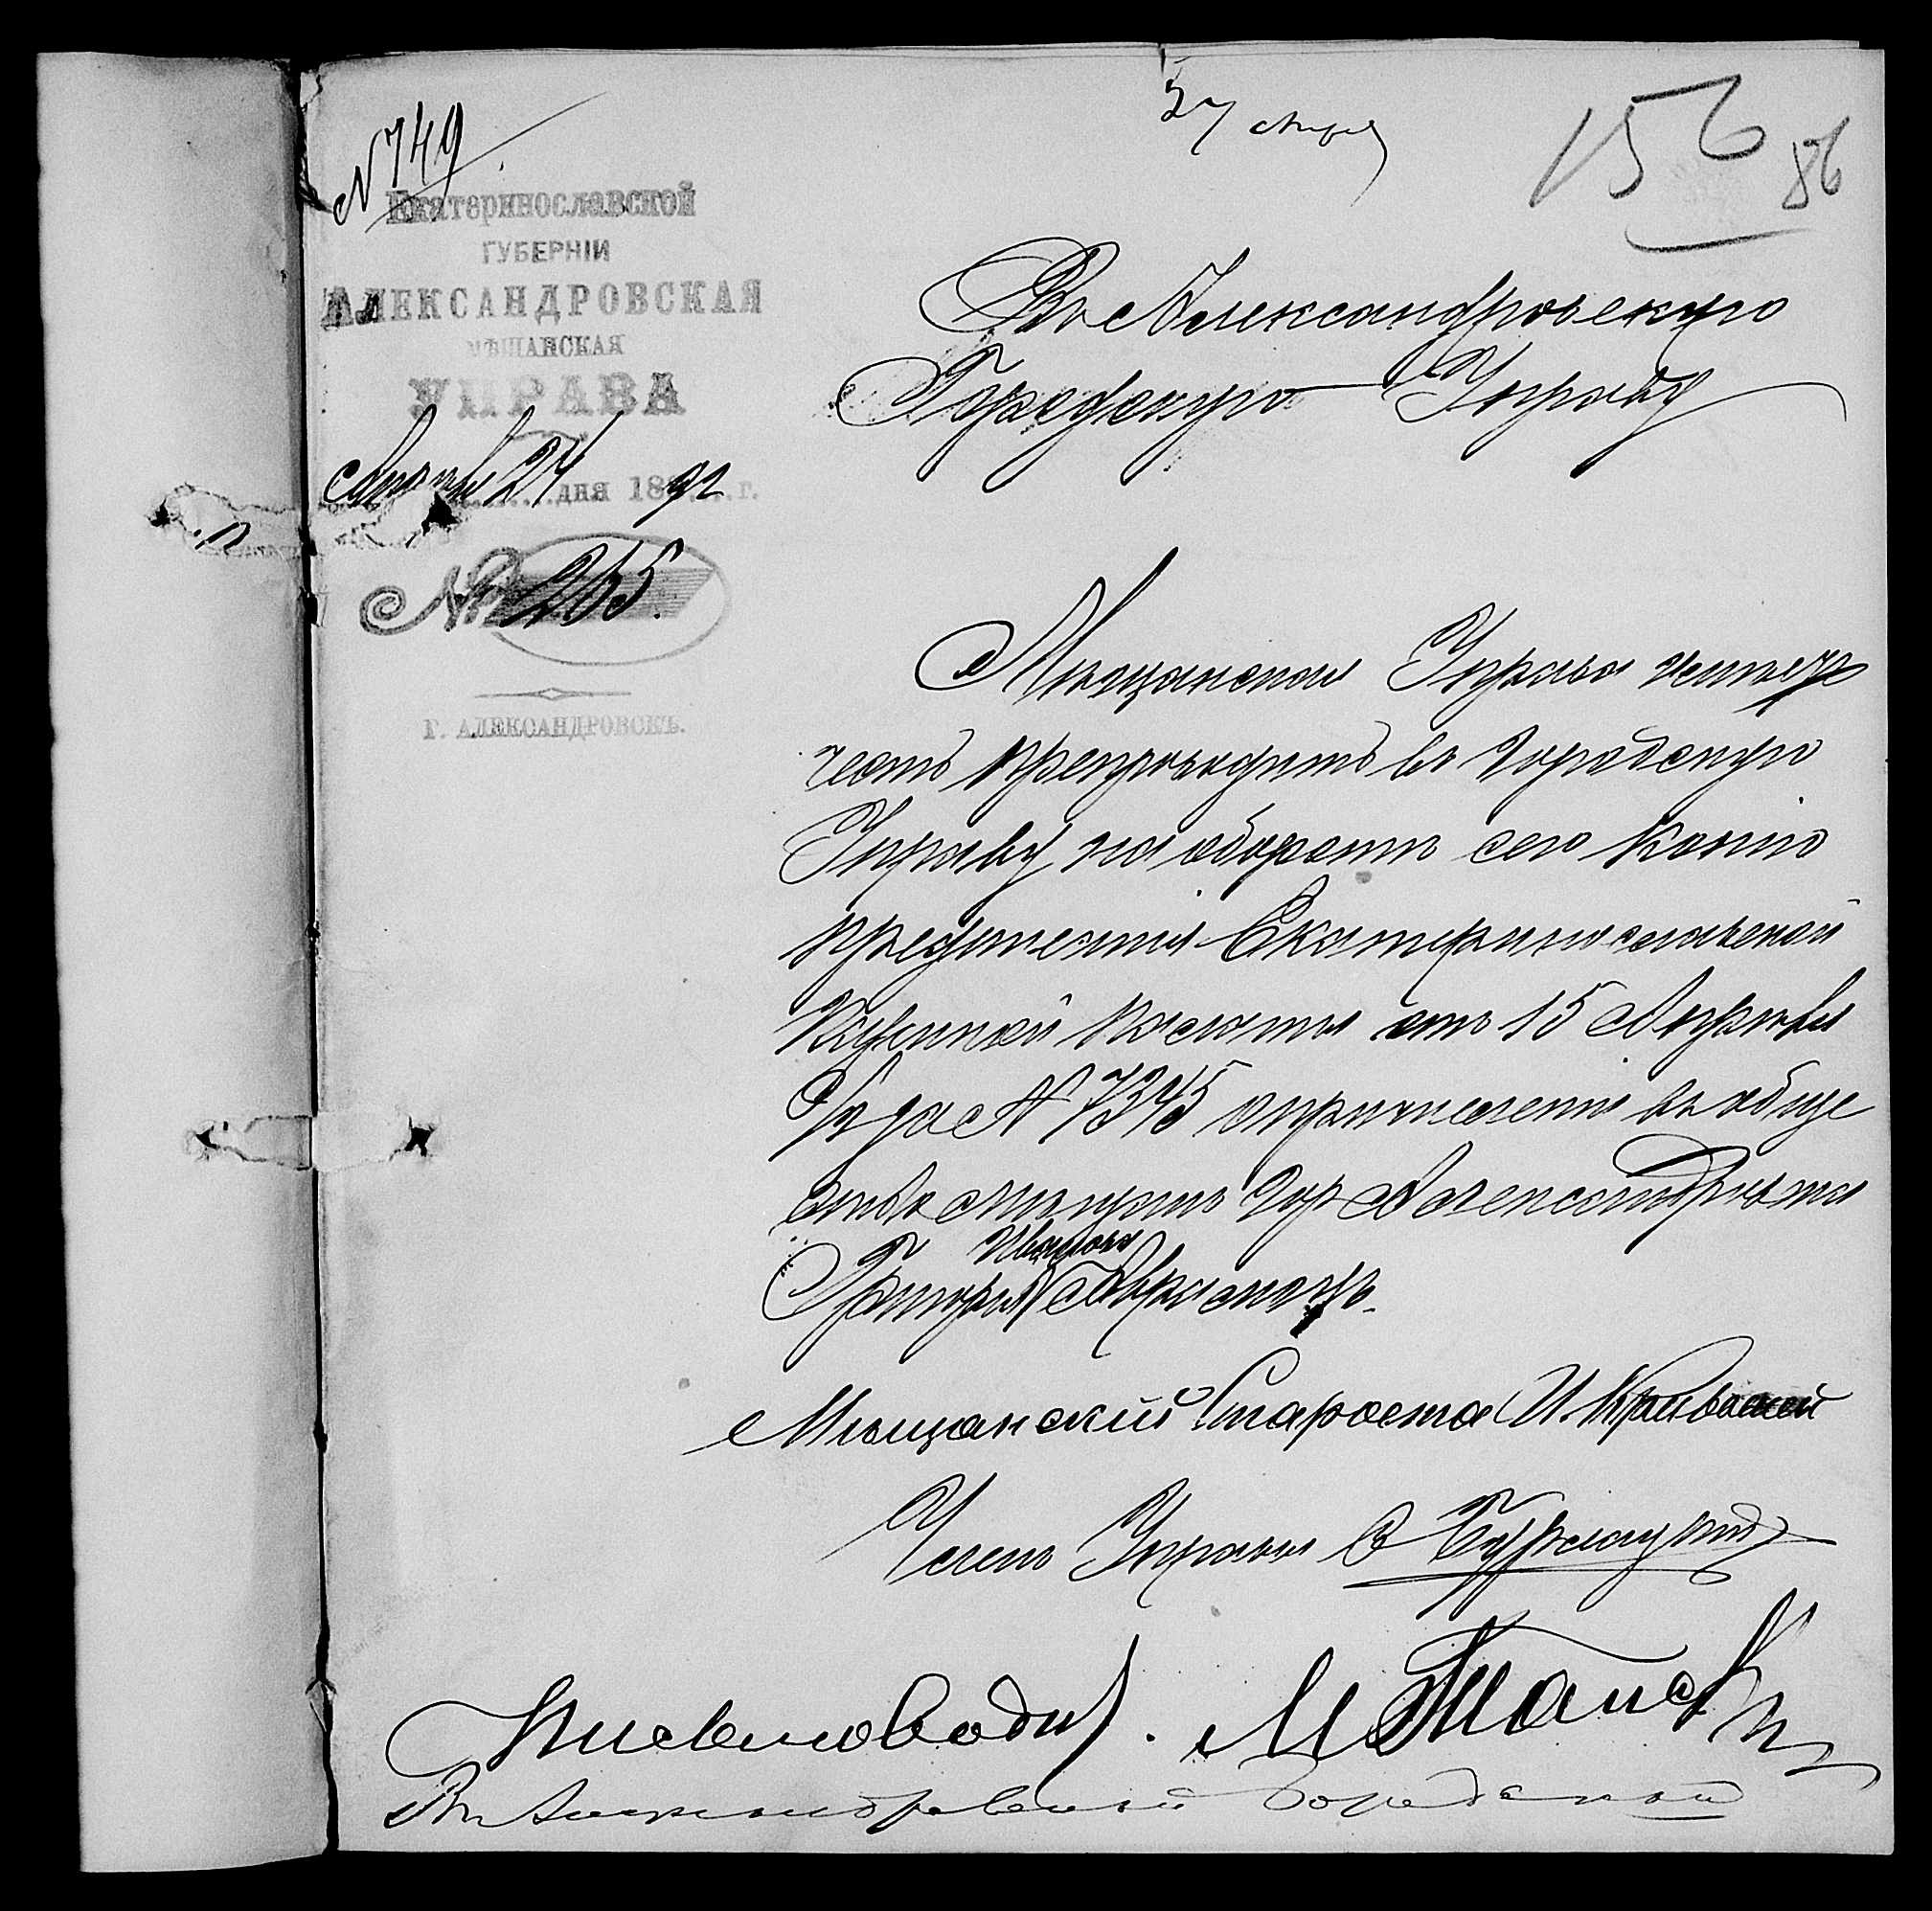 N 749
27 Апреля
156
86
Екатеринославской
ГУБЕРНІИ
АЛЕКСАНДРОВСКАЯ
МѢЩАНСКАЯ
УПРАВА
Апреля 24 дня 1892 г.
№ 265.
Г. АЛЕКСАНДРОВСКЪ.
Въ Александровскую
Городскую Управу
Мѣщанская Управа имѣетъ
честь препроводить въ Городскую
Управу на оборотѣ сего копію
предписанія Екатеринославской
Казенной Палаты отъ 15 Апрѣля
года N 7345 о причисленіи въ обще
ство мѣщанъ гор Александровска
Иванова
Григорія
Мѣщанскій Староста И.
Членъ Управы
Въ Александровской Городской